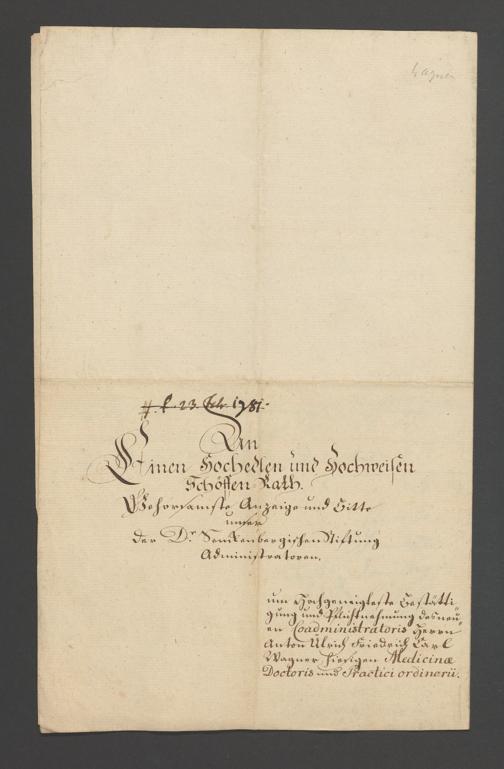 Wagner
23. Feb. 1781.
An
Einen Hochedlen und Hochweisen
Schöffen Rath.
Gehorsamste Anzeige und Bitte
unser
der Dr. Senckenbergischen Stiftung
Administratoren.
um Hochgeneigteste Bestätti-
gung und Pflichtnehmung des neu-
en Coadministratoris Herrn
Anton Ulrich Friedrich Carl
Wagner hiesigen Medicinæ
Doctoris und Practici ordinarii.